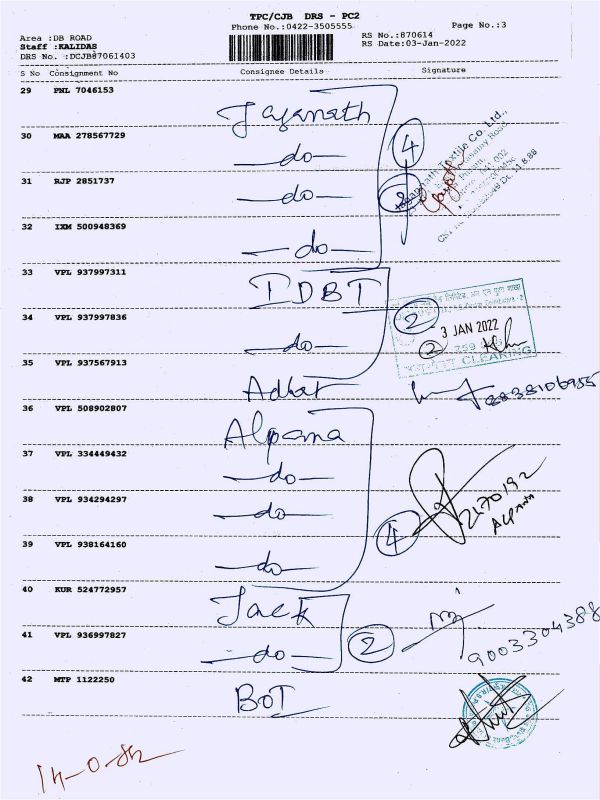 TPC/CJB DRS - PC2
Phone No.:0422-3505555
Page No.:3
Area :DB ROAD
RS No.:870614
Staff :KALIDAS
RS Date:03-Jan-2022
DRS No. :DCJB87061403
S No Consignment No Consignee Details Signature
29 PNL 7046153
Jagannath
30 MAA 278567729
-do-
4
31 RJP 2851737
-do-
32 IXM 500948369
-do-
33 VPL 937997311
IDBT
34 VPL 937997836
-do-
2
3 JAN 2022
2
CLEARING
35 VPL 937567913
Adhar
8838106955
36 VPL 508902807
Alpana
37 VPL 334449432
-do-
38 VPL 934294297
-do-
2470192
ALPANA
39 VPL 938164160
-do-
4
40 KUR 524772957
Jack
41 VPL 936997827
-do-
2
9003304388
42 MTP 1122250
BOT